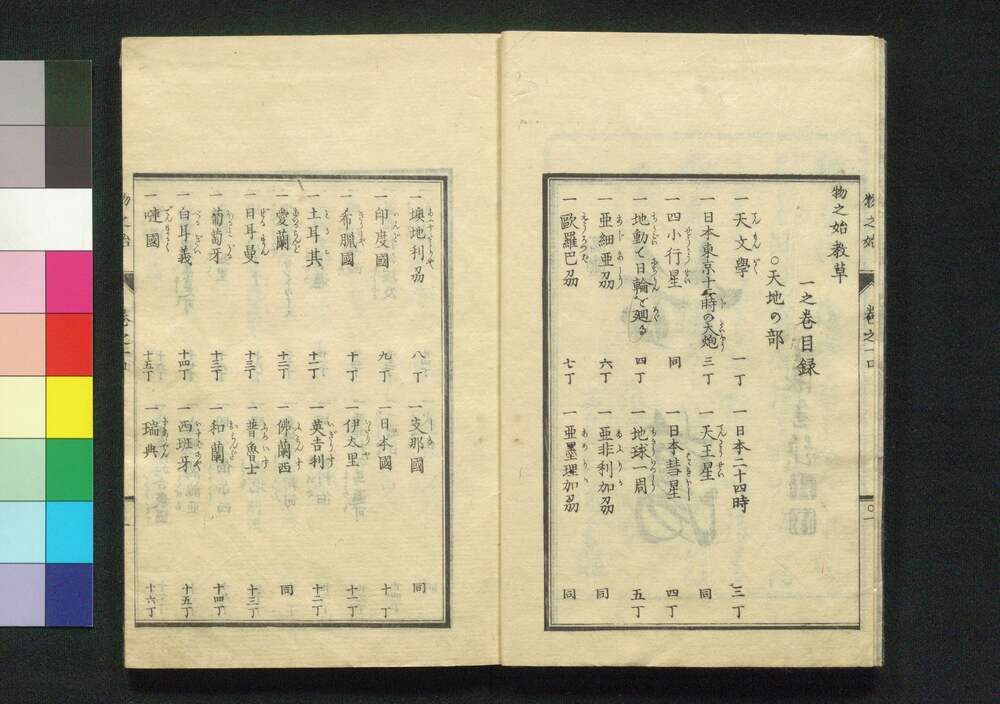 物之始教草
一之巻目録
○天地の部
一天文學 一丁
一日本二十四時 三丁
一日本東京十二時の大炮 三丁
一天王星 同
一四小行星 同
一日本彗星 四丁
一地動て日輪を廻る 四丁
一地球一周 五丁
一亜細亜刕 六丁
一亜非利加刕 同
一歐羅巴刕 七丁
一亜墨理加刕 同
一墺地利刕 八丁
一支那國 同
一印度國 九丁
一日本國 十丁
一希臘國 十丁
一伊太里 十一丁
一土耳其 十一丁
一英吉利 十二丁
一愛蘭 十二丁
一佛蘭西 同
一日耳曼 十三丁
一普魯士 十三丁
一葡萄牙 十三丁
一和蘭 十四丁
一白耳義 十四丁
一西班牙 十五丁
一嗹國 十五丁
一瑞典 十六丁